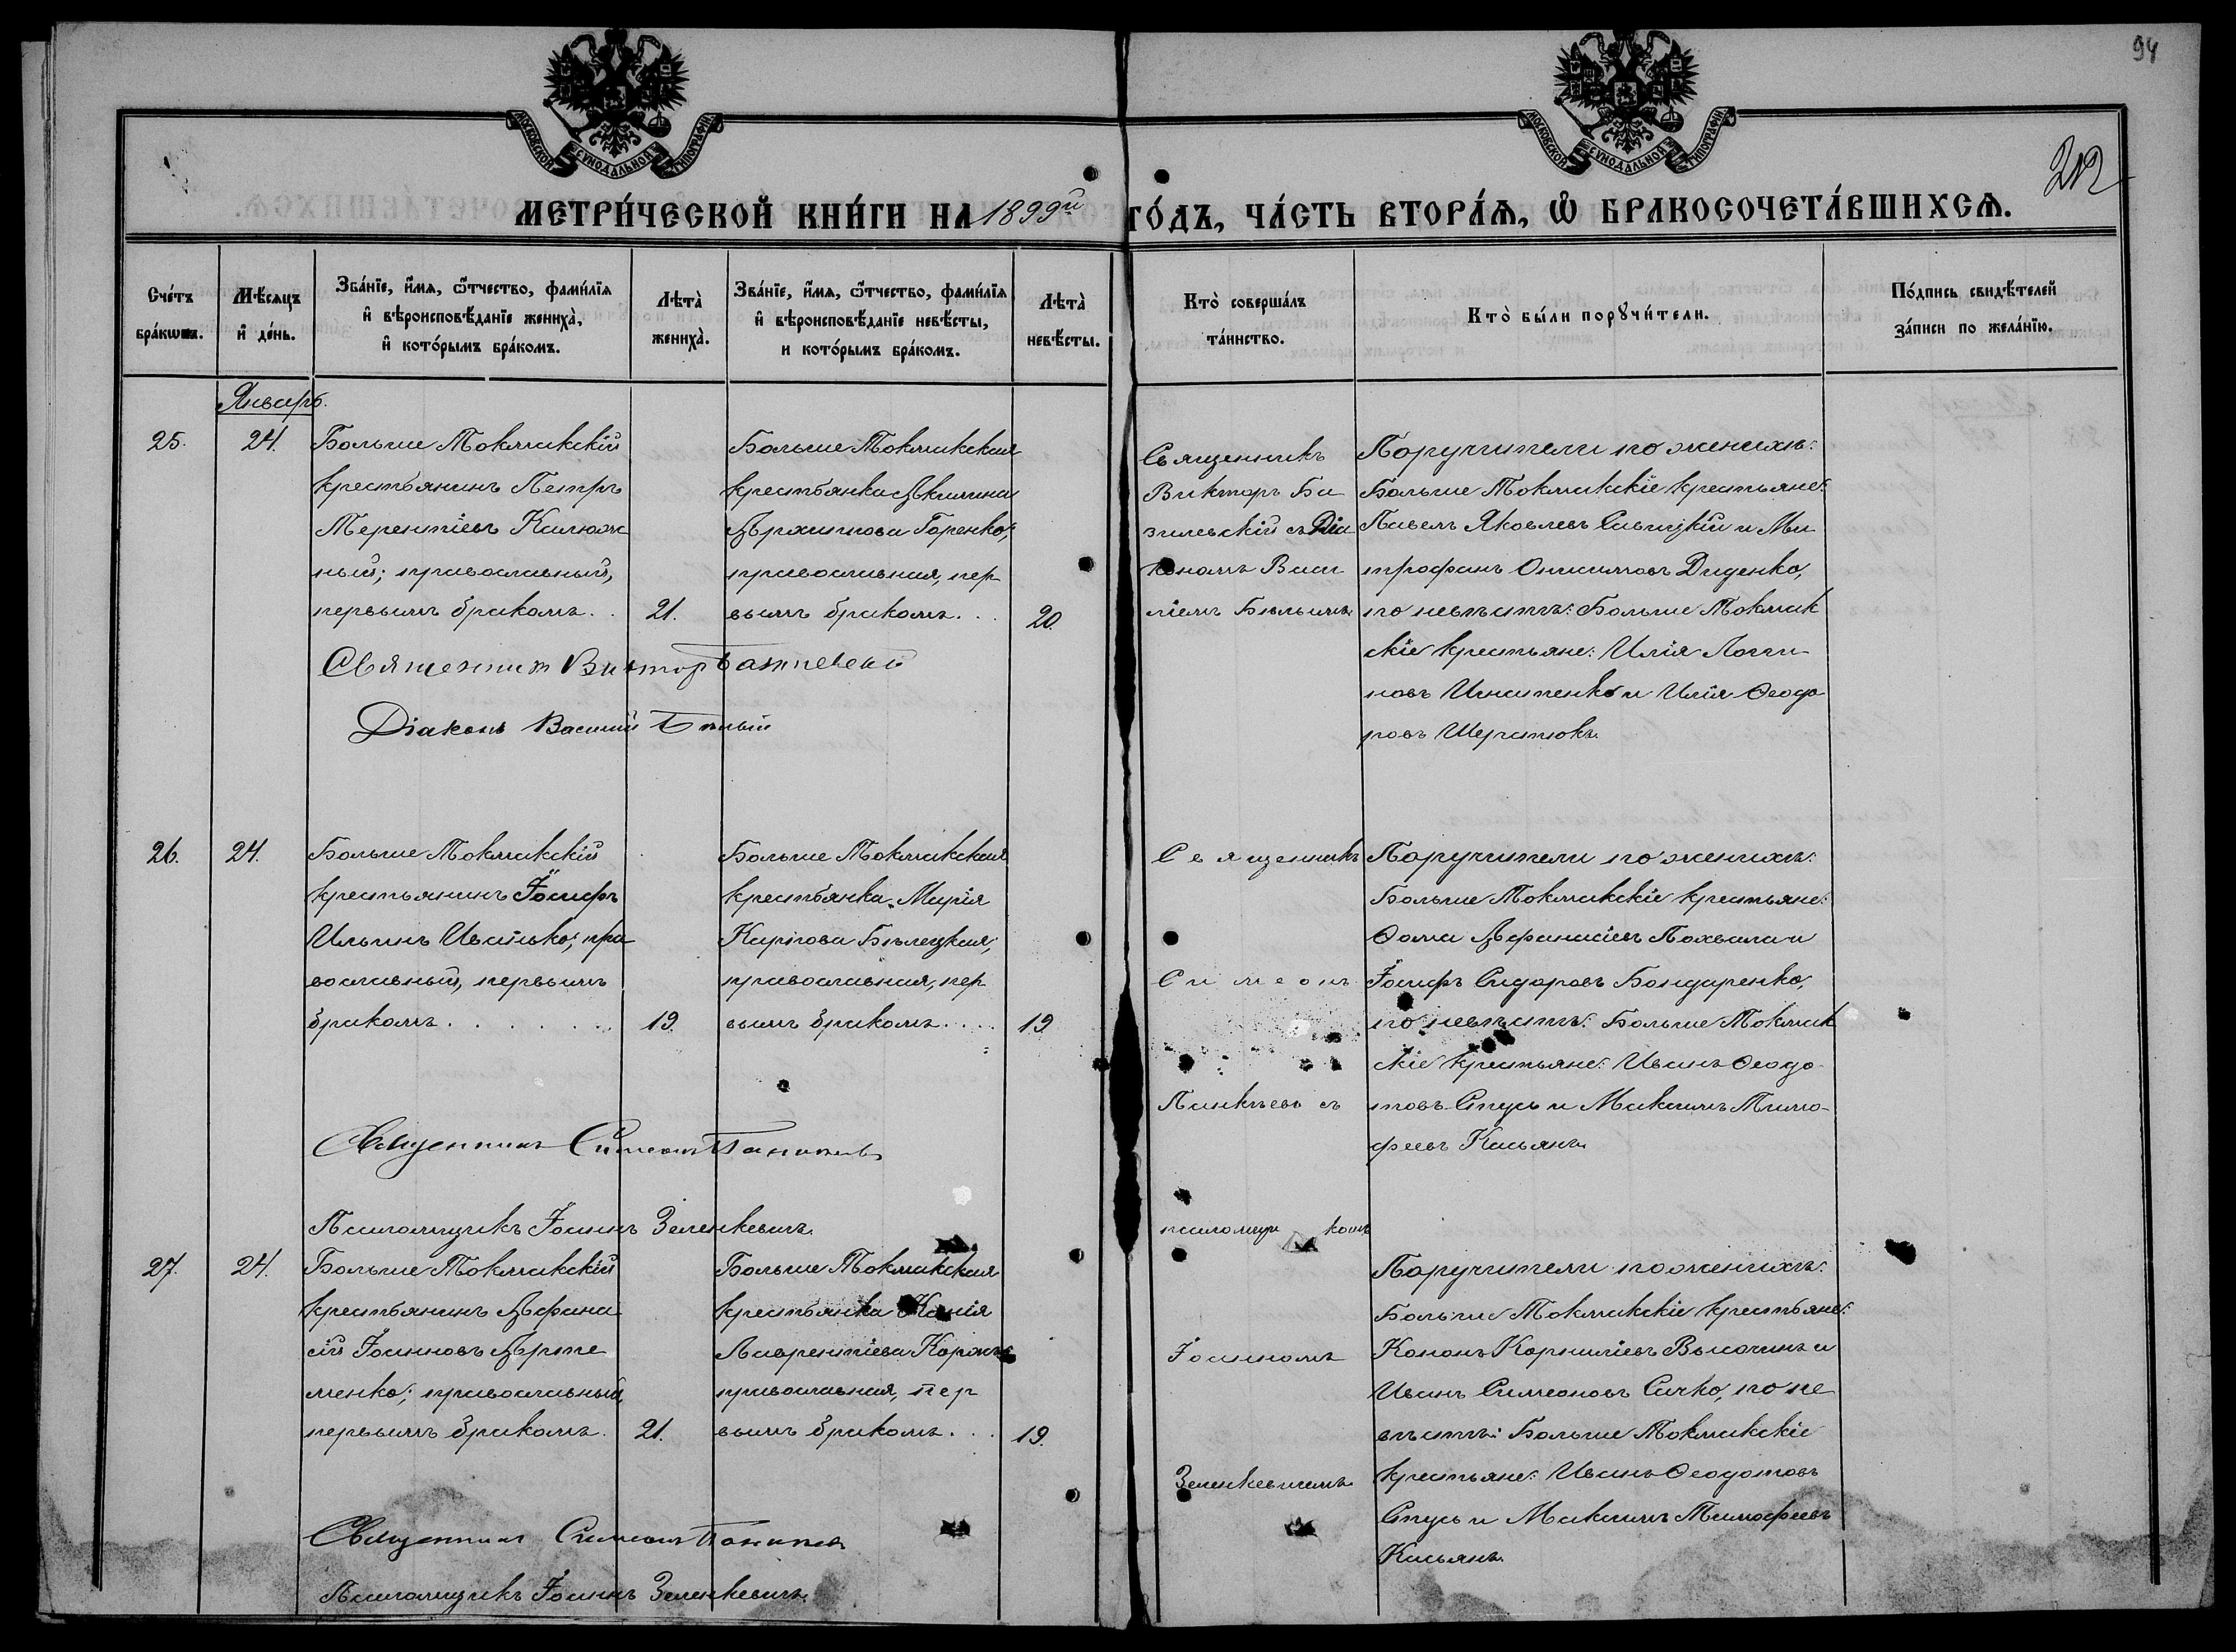 94
212
МОСКОВСКОЙ СУНОДАЛЬНОЙ ТИПОГРАФІИ
МОСКОВСКОЙ СУНОДАЛЬНОЙ ТИПОГРАФІИ
МЕТРИ́ЧЕСКОЙ КНИ́ГИ НА 1899й ГО́ДЪ, ЧА́СТЬ ВТОРА́Ѧ, Ѡ҆ БРАКОСОЧЕТА́ВШИХСѦ.
Сче́тъ бра́кωвъ.
Мѣ́сяцъ и҆ де́нь.
Зва́нїе, и҆́мѧ, ѻ҆́тчество, фами́лїѧ
и҆ вѣроисповѣ́данїе жениха̀,
и҆ кото́рымъ бра́комъ.
Лѣта̀ жениха̀.
Зва́нїе, и҆́мѧ, ѻ҆́тчество, фами́лїѧ
и҆ вѣроисповѣ́данїе невѣ́сты,
и кото́рымъ бра́комъ.
Лѣта̀ невѣ́сты.
Кто̀ соверша́лъ та́инство.
Кто̀ бы́ли порꙋчи́тели.
По́дпись свидѣ́телей за́писи по жела́нїю.
Январь.
25.
24.
Больше Токмакскій
крестьянинъ Петръ
Терентіевъ Калюж
ный; православный,
первымъ бракомъ. .
21.
Больше Токмакская
крестьянка Акилина
Архипова Горенко;
православная, пер
вымъ бракомъ. . .
20.
Священникъ
Викторъ Ба
жилевскій съ Діа
кономъ Васи
ліемъ Бѣлымъ
Поручители по женихѣ:
Больше Токмакскіе крестьяне:
Павелъ Яковлевъ Савицкій и Ми
трофанъ Онисимовъ Диденко,
по невѣстѣ: Больше Токмак
скіе крестьяне: Илія Логги
новъ Игнатенко и Илія Ѳеодо
ровъ Шерстюкъ.
Священник Виктор
Діаконъ Василій Бѣлый
26.
24.
Больше Токмакскій
крестьянинъ Іосифъ
Ильинъ Ивашко; пра
вославный, первымъ
бракомъ. . . . . . .
19.
Больше Токмакская
крестьянка Марія
Карпова Бѣлецкая;
православная, пер
вымъ бракомъ. . . .
19.
Священникъ
Симеонъ
Панкѣевъ съ
псаломщи комъ
Іоанномъ
Зеленкевичемъ
Поручители по женихѣ:
Больше Токмакскіе крестьяне:
Ѳома Аѳанасіевъ Похвала и
Іосифъ Сидоровъ Бондаренко,
по невѣстѣ: Больше Токмак
скіе крестьяне: Иванъ Ѳеодо
товъ Спусь и Максимъ Тимо-
феевъ Касьянъ.
Священникъ Симеонъ Панкѣевъ
Псаломщикъ Іоаннъ Зеленкевичъ.
27.
24.
Больше Токмакскій
крестьянинъ Афана
сій Іоанновъ Арте
менко; православный,
первымъ бракомъ.
21.
Больше Токмакская
крестьянка Ксенія
Лаврентіева
православная, пер
вымъ бракомъ. . .
19.
Поручители по женихѣ:
Больше Токмакскіе крестьяне:
Кононъ Корниліевъ Высочинъ и
Иванъ Симеоновъ Сачко, по не
вѣстѣ: Больше Токмакскіе
крестьяне: Иванъ Ѳеодотовъ
Спусь и Максимъ Тимофеевъ
Касьянъ.
Священникъ Симеонъ Панкѣевъ
Псаломщикъ Іоаннъ Зеленкевичъ.